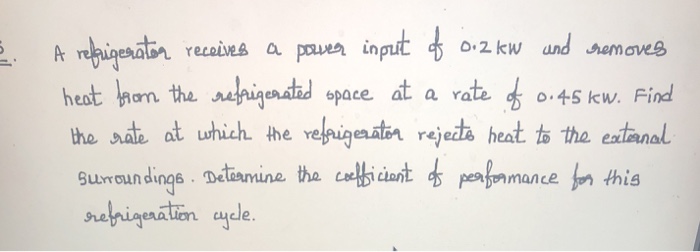 A refrigerator receives a power input of 0.2 kW and removes
heat from the refrigerated space at a rate of 0.45 kW. Find
the rate at which the refrigerator rejects heat to the external
surroundings. Determine the coefficient of performance for this
refrigeration cycle.